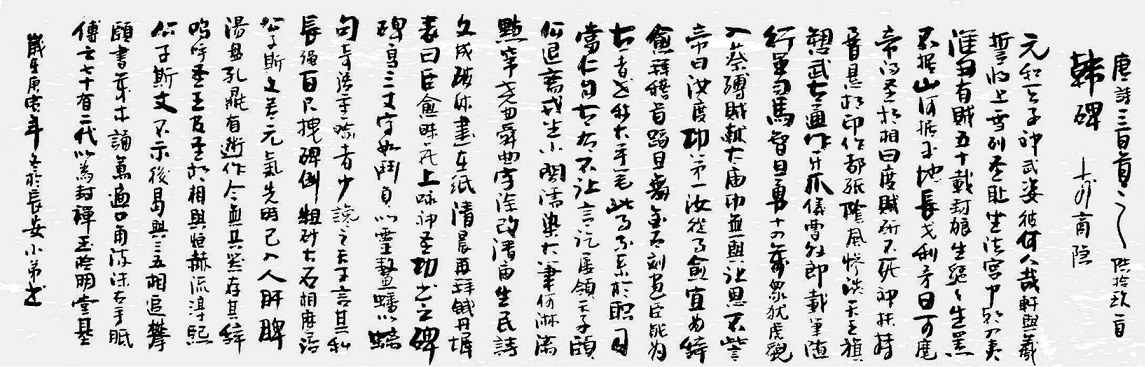 唐詩三百首之 陸拾玖首
韓碑 李商隱
元和天子神武姿彼何人哉軒與羲
誓將上雪列聖恥坐法宮中朝四夷
淮西有賊五十載封狼生貙々生羆
不據山河據平地長戈利矛日可麾
帝得聖相相曰度賊斫不死神扶持
腰懸相印作都統陰風慘淡天王旗
愬武古通作牙爪儀曹外郎載筆隨
行軍司馬智且勇十四萬眾猶虎貔
入蔡縛賊獻太廟功無與讓恩不訾
帝曰汝度功第一汝從事愈宜為辭
愈拜稽首蹈且舞金石刻畫臣能為
古者世稱大手筆此事不系於職司
當仁自古有不讓言訖屢頷天子頤
公退齋戒坐小閣濡染大筆何淋漓
點竄堯典舜典字塗改清廟生民詩
文成破體書在紙清晨再拜鋪丹墀
表曰臣愈昧死上詠神聖功書之碑
碑高三丈字如鬥負以靈鰲蟠以螭
句奇語重喻者少讒之天子言其私
長繩百尺拽碑倒粗砂大石相磨治
公之斯文若元氣先時已入人肝脾
湯盤孔鼎有述作今無其器存其辭
嗚呼聖王及聖相相與烜赫流淳熙
公之斯文不示後曷與三五相追攀
願書萬本誦萬過口角流沫右手胝
傳之七十有二代以為封禪玉檢明堂基
歲在庚寅年冬於長安小弟書